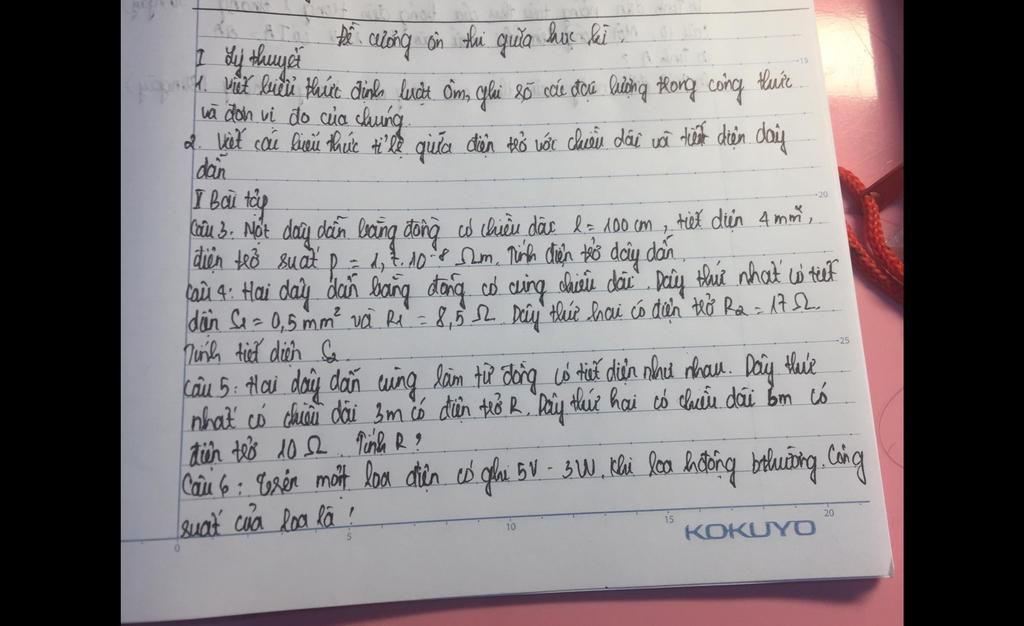 Đề cương ôn thi giữa học kì.
I Lý thuyết
1. Viết biểu thức định luật ôm, ghi rõ các đại lượng trong công thức
và đơn vị đo của chúng.
2. Viết các biểu thức tỉ lệ giữa điện trở với chiều dài và tiết diện dây
dẫn
I Bài tập
Câu 3: Một dây dẫn bằng đồng có chiều dài l = 100 cm, tiết diện 4 mm²,
điện trở suất ρ = 1,7.10⁻⁸ Ωm. Tính điện trở dây dẫn.
Câu 4: Hai dây dẫn bằng đồng có cùng chiều dài. Dây thứ nhất có tiết
diện S₁ = 0,5 mm² và R₁ = 8,5 Ω. Dây thứ hai có điện trở R₂ = 17 Ω.
Tính tiết diện S₂
Câu 5: Hai dây dẫn cùng làm từ đồng có tiết diện như nhau. Dây thứ
nhất có chiều dài 3m có điện trở R. Dây thứ hai có chiều dài 6m có
điện trở 10 Ω. Tính R?
Câu 6: Trên một loa điện có ghi 5V - 3W. Khi loa hđộng bthường. Công
suất của loa là!
KOKUYO
0 5 10 15 20
19
20
25